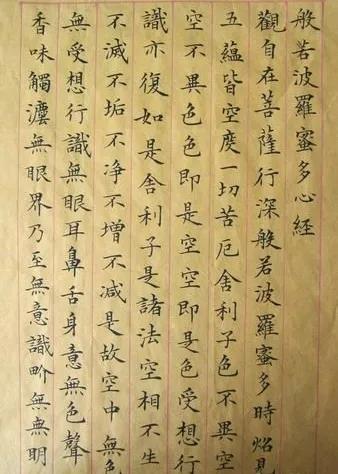 般若波羅蜜多心經
觀自在菩薩行深般若波羅蜜多時炤見
五蘊皆空度一切苦厄舍利子色不異空
空不異色色即是空空即是色受想行
識亦復如是舍利子是諸法空相不生
不滅不垢不净不增不減是故空中無色
無受想行識無眼耳鼻舌身意無色聲
香味觸灋無眼界乃至無意識界無無明